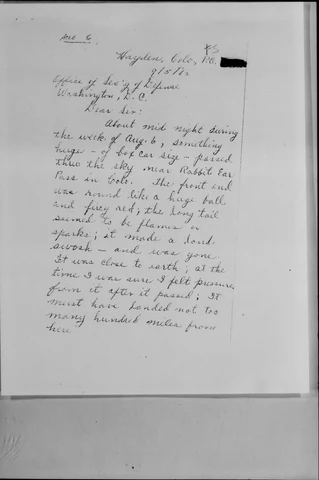 Hayden, Colo, P.O.
9/5/52
Office of Sec'y of Defense
Washington, D.C.
Dear Sir:
About mid night during
the week of Aug. 6, something
huge - of box car size - passed
thru the sky near Rabbit Ear
Pass in Colo. The front end
was round like a huge ball
and firey red; the long tail
seemed to be flames or
sparks; it made a loud
swosh - and was gone.
It was close to earth; at the
time I was sure I felt pressure
from it after it passed; It
must have landed not too
many hundred miles from
here.